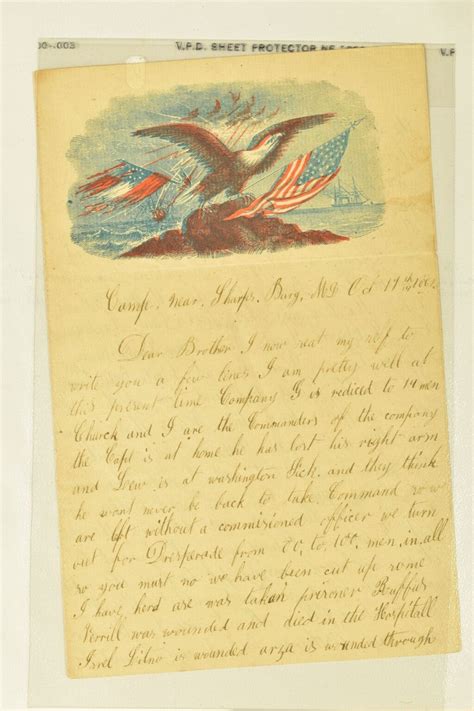 V.P.D. SHEET PROTECTOR
Camp. Near. Sharps. Burg, Md Oct 17th 1862
Dear Brother I now seat my self to
write you a few lines I am pretty well at
this present time Company G is rediced to 14 men
Church and I are the Commanders of the company
the Capt is at home he has lost his right arm
and is at washington Sick. and they think
he wont never be back to take Command so w
are left without a commisioned officer we turn
out for Dresperade from 80, to, 100, men, in, all
so you must no we have been cut up some
I have herd are was taken prisoner Ruffus
Verrill was wounded and died in the Hospitall
is wounded is wounded through